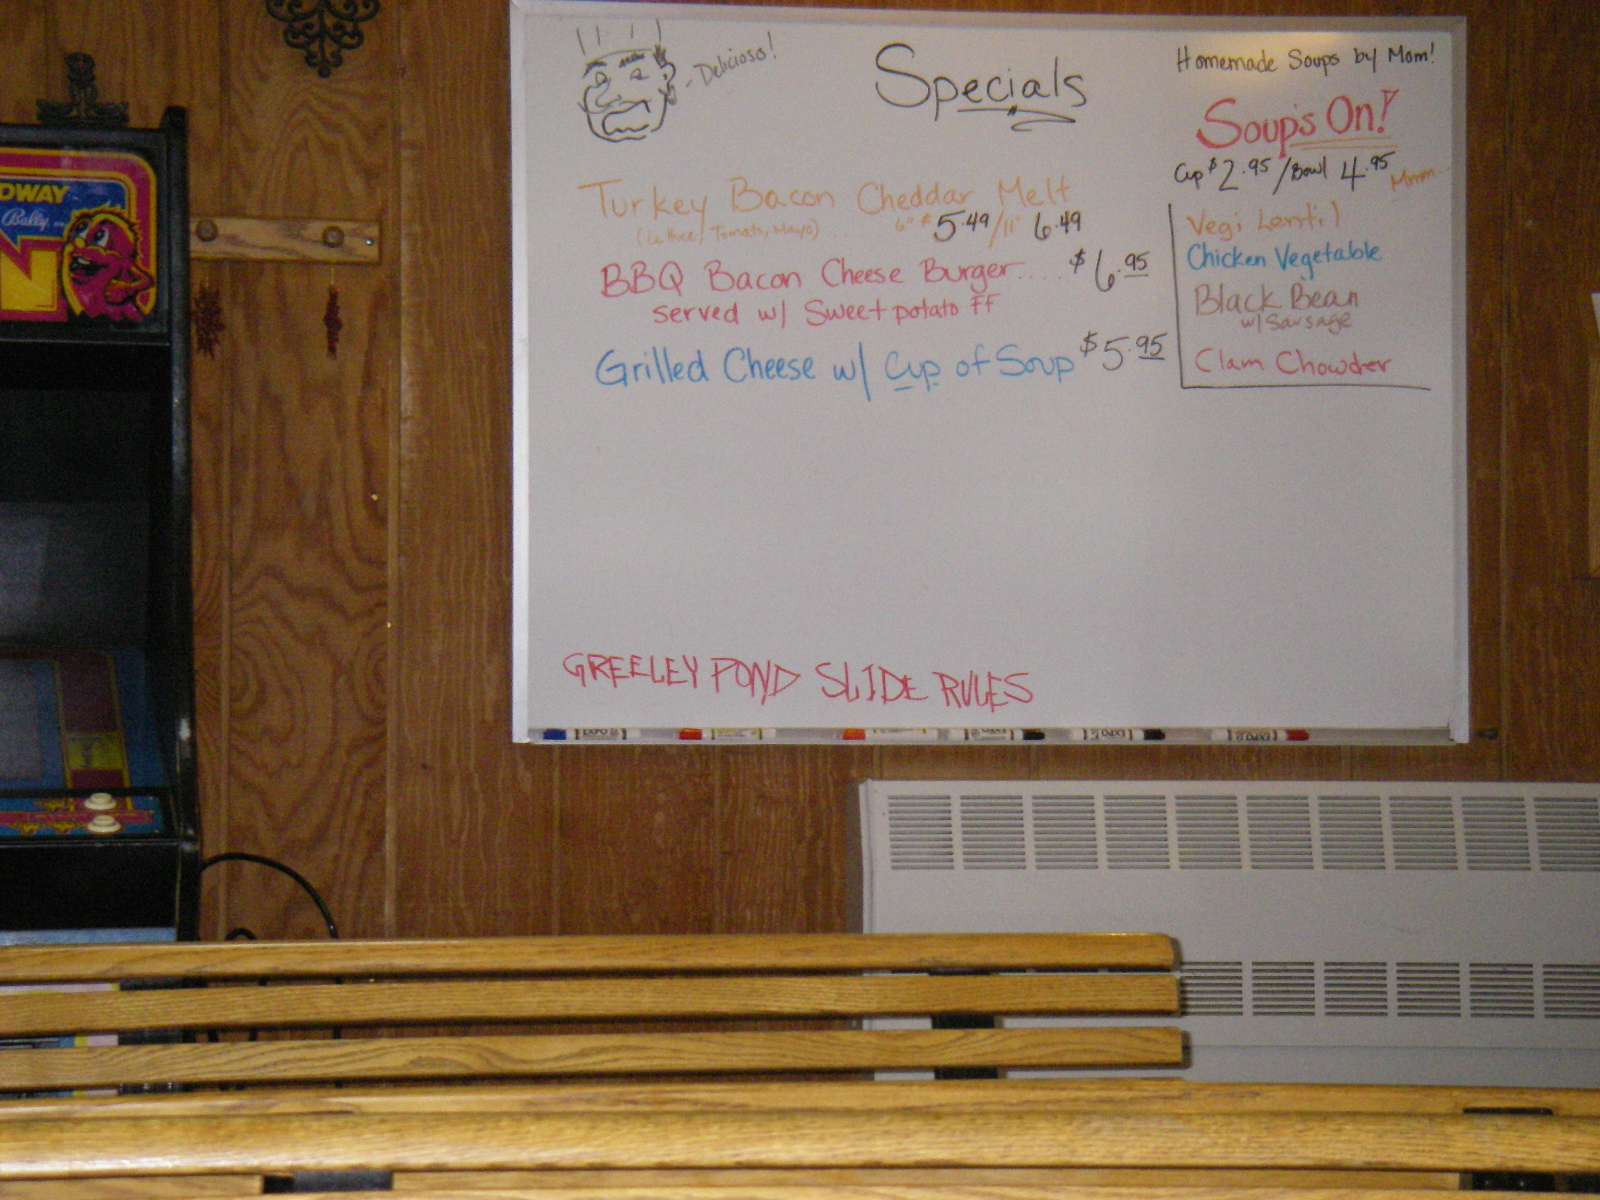 - Delicioso!
Specials
Turkey Bacon Cheddar Melt
(Lettuce, Tomato, Mayo) .... 6" $5.49/11" 6.49
BBQ Bacon Cheese Burger.... $6.95
served w/ Sweet potato FF
Grilled Cheese w/ Cup of Soup $5.95
Homemade Soups by Mom!
Soup's On!
Cup $2.95/Bowl 4.95
Mmm..
Vegi Lentil
Chicken Vegetable
Black Bean
w/ Sausage
Clam Chowder
GREELEY POND SLIDE RULES
DWAY
Bally
N
EXPO